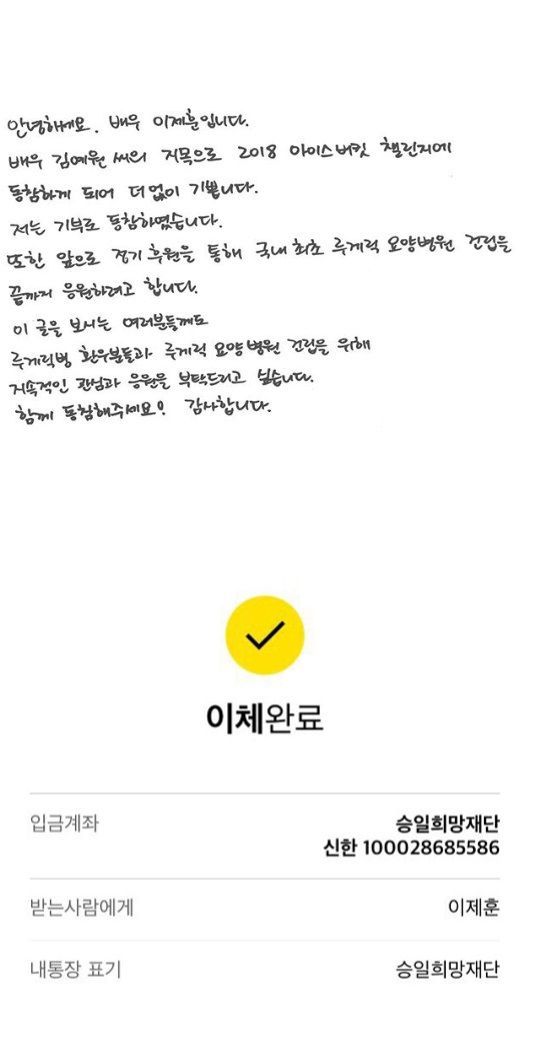 안녕하세요. 배우 이제훈입니다.
배우 김예원 씨의 지목으로 2018 아이스버킷 챌린지에
동참하게 되어 더없이 기쁩니다.
저는 기부로 동참하였습니다.
또한 앞으로 정기후원을 통해 국내 최초 루게릭 요양병원 건립을
끝까지 응원하려고 합니다.
이 글을 보시는 여러분들께도
루게릭병 환우분들과 루게릭 요양병원 건립을 위해
지속적인 관심과 응원을 부탁드리고 싶습니다.
함께 동참해주세요! 감사합니다.
이체완료
입금계좌 승일희망재단
신한 100028685586
받는사람에게 이제훈
내통장 표기 승일희망재단